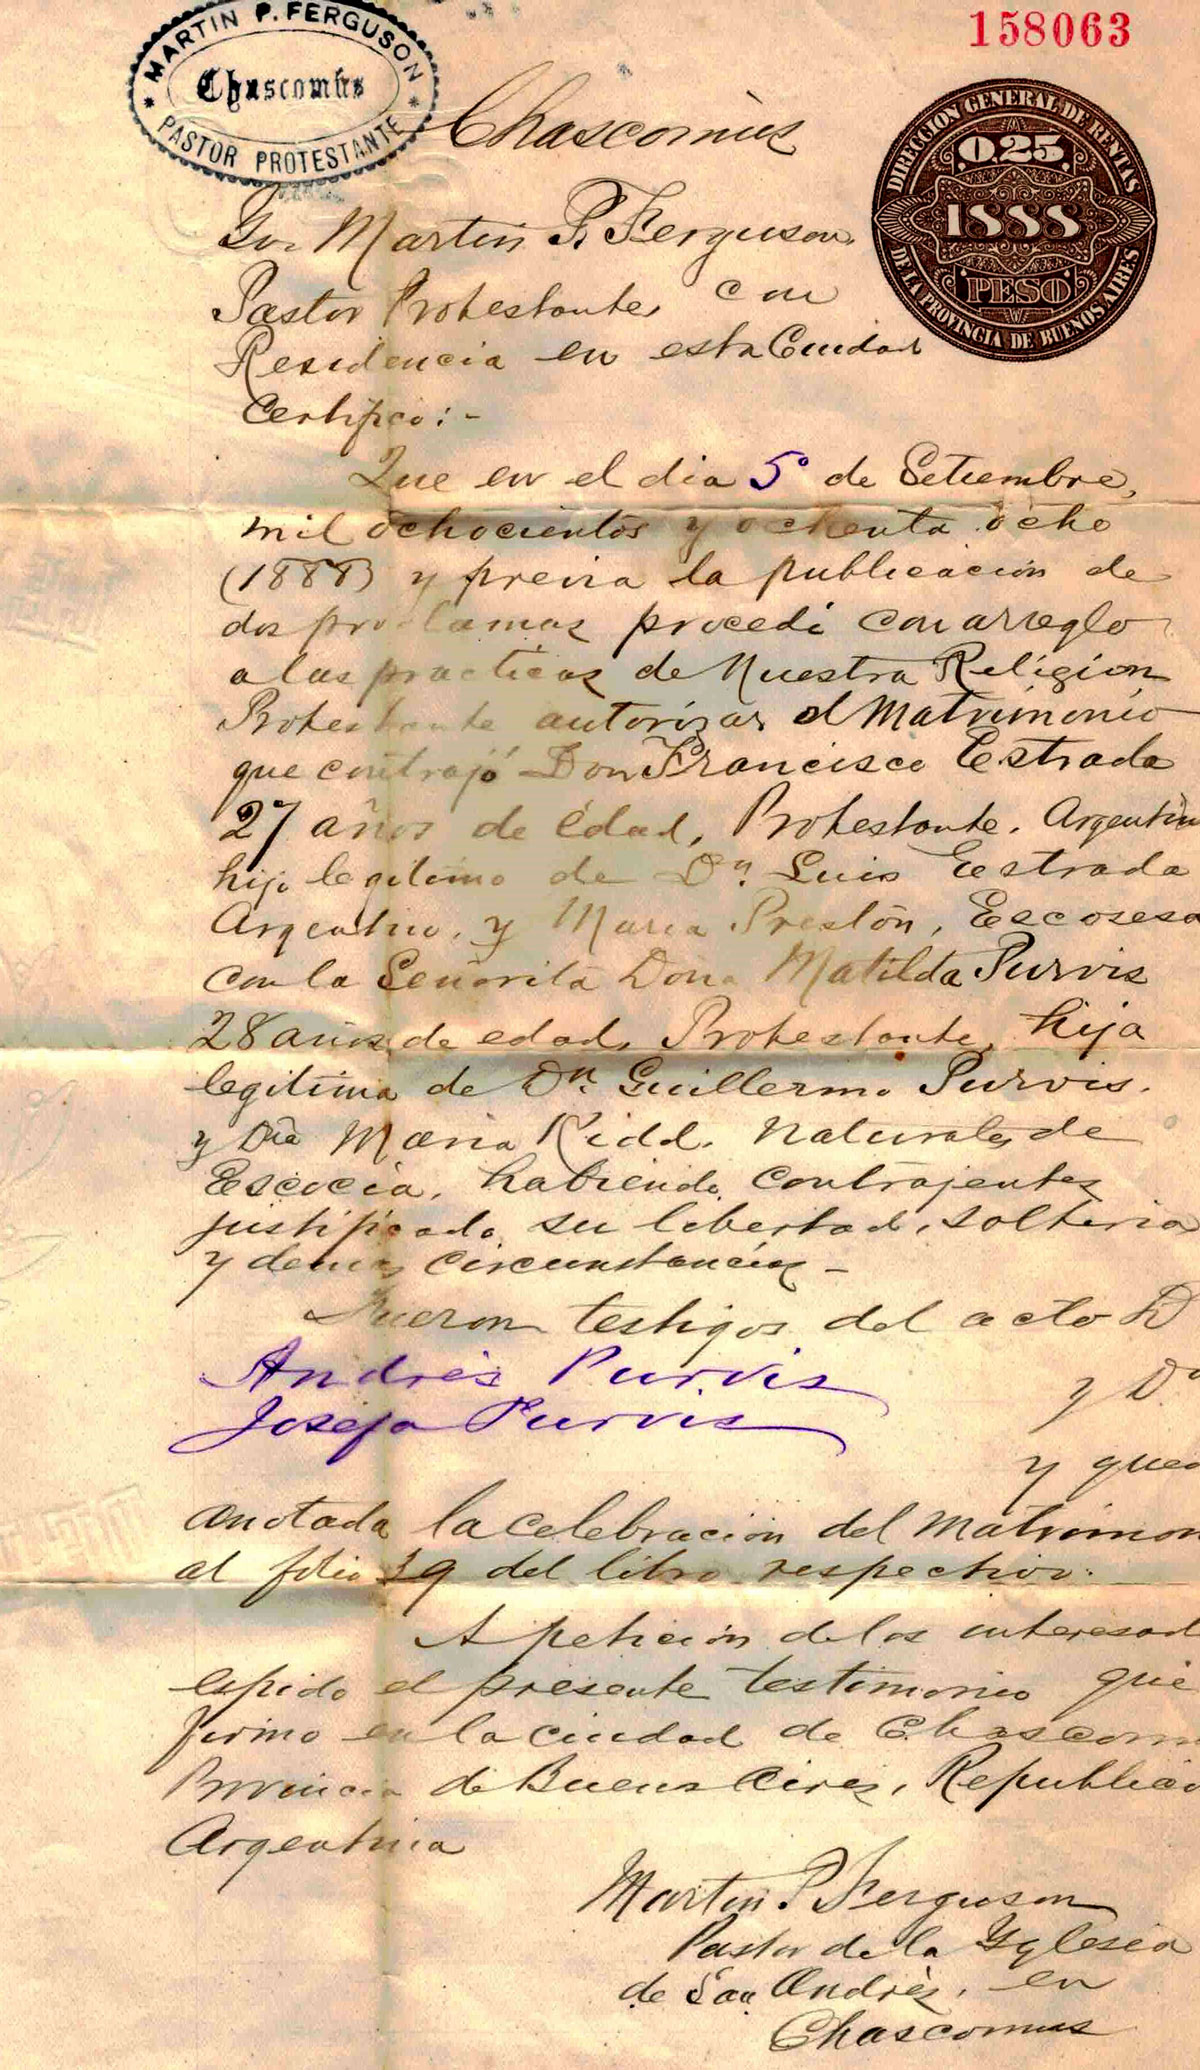 MARTIN P. FERGUSON
Chascomús
PASTOR PROTESTANTE
158063
DIRECCION GENERAL DE RENTAS
0.25
1888
PESO
DE LA PROVINCIA DE BUENOS AIRES
Chascomús
Yo. Martin P. Ferguson.
Pastor Protestante, con
Residencia en esta Ciudad
Certifico:-
Que en el dia 5º de Setiembre,
mil ochocientos y ochenta ocho
(1888) y previa la publicación de
dos proclamas procedi con arreglo
a las practicas de Nuestra Religion
Protestante autorizar el Matrimonio
que contrajó Don Francisco Estrada
27 años de édad, Protestante. Argentin
hijo legitimo de Dn. Luis Estrada
Argentino, y Maria Prestón, Escosesa
con la Señorita Dona Matilda Purvis
28 años de edad, Protestante, hija
legitima de Dn. Guillermo Purvis.
y Dña Maria Kidd. Naturales de
Escocia, habiendo contrajentes
justificado su libertad, solteria
y demas circunstancias -
Fueron testigos del acto D
Andrés Purvis y Dª
Josefa Purvis
y que
anotada la celebración del Matrimon
al folio 39 del libro respectivo.
A petición de los interesad
espido el presente testimonio que
firmo en la ciudad de Chascom
Provincia de Buenos Aires, Republica
Argentina
Martin P Ferguson
Pastor de la Yglesia
de San Andrés, en
Chascomus